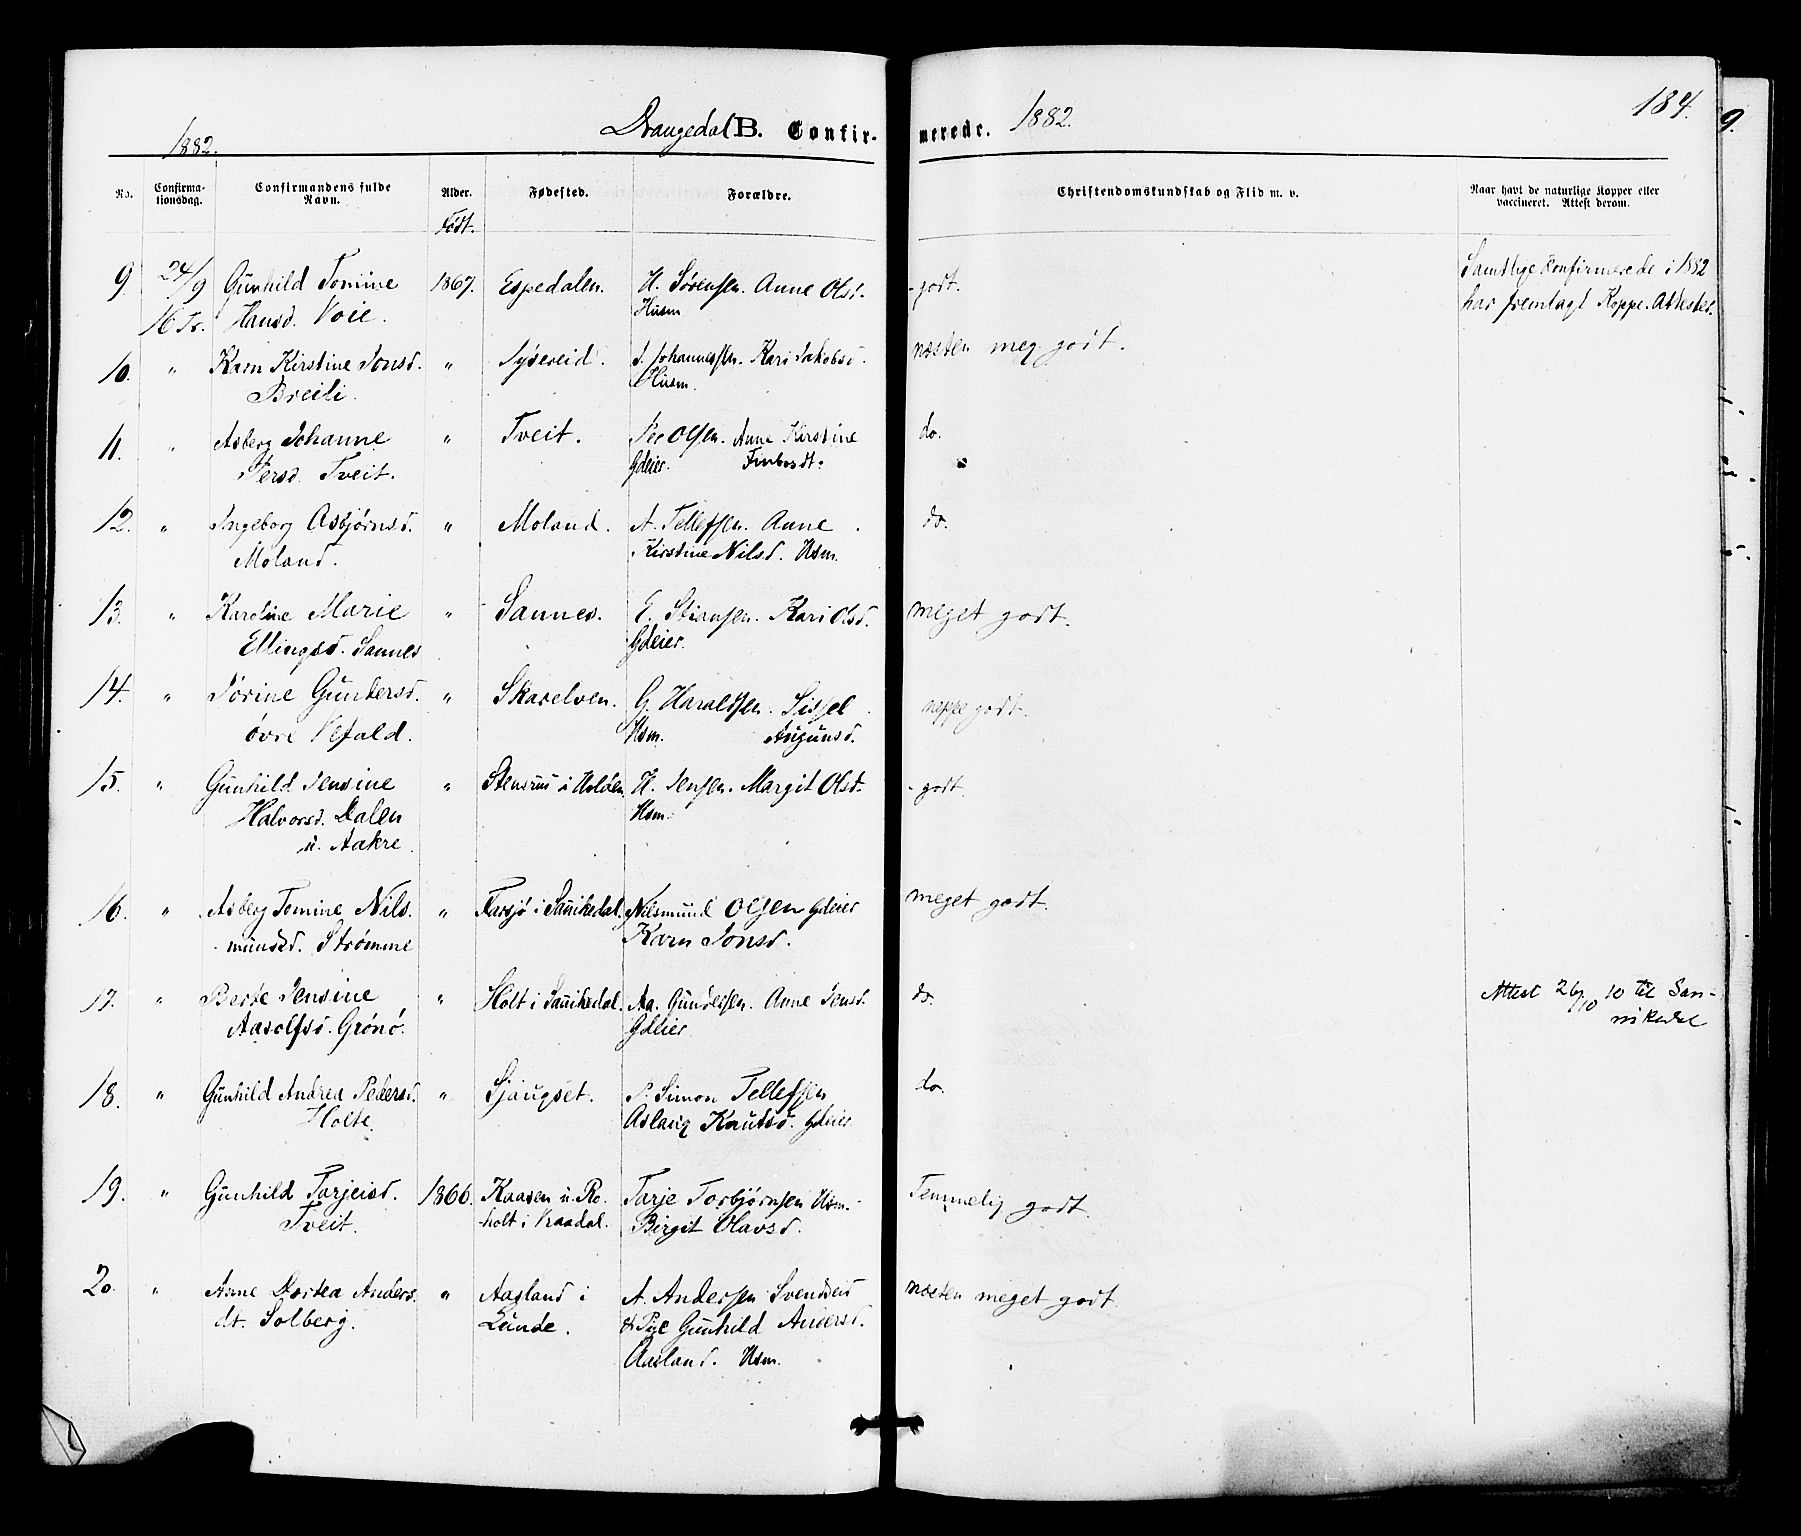 1882. Drangedal B. Confirmerede. 1882. 184.
9.
No. Confirmationsdag. Confirmandens fulde Navn. Alder. Fødested. Forældre. Christendomskundskab og Flid m. v. Naar havt de naturlige Kopper eller vaccineret. Attest derom.
Født.
9. 24/9 Gunhild Tomine 1867. Espedalen. H. Sørensen. Anne Olsd. godt. Samtlige konfirmerede i 1882
16 Tr. Hansd. Voie. Husm har fremlagt Koppe-Attester.
10. " Karn Kirstine Jonsd. " J. Johannessen. Kari Jakobsd. næsten meg. godt.
Breili. Husm.
11. " Asberg Johanne " Tveit. Per Olsen. Anne Kirstine do.
Persd. Tveit. Gdeier.
12. " Ingeborg Asbjørnsd. " Moland. A. Tellefsen. Anne do.
Moland. Kirstine Nilsd. Husm.
13. " Karoline Marie " Sannes. E. Stiansen. Kari Olsd. meget godt.
Ellingsd. Sannes Gdeier.
14. " Jørine Gundersd. " Skarelven. G. Haraldsen. Sissel neppe godt.
øvre Vefald. Husm. Augunsd.
15. " Gunhild Jensine " H. Jensen. Margit Olsd. godt.
Halvorsd. Dalen Husm.
u. Aakre.
16. " Asberg Tomine Nils- " Farsjø i Sannikedal. Nilsmund Olsen Gdeier meget godt.
mundsd. Strømme Karn Jonsd.
17. " Berte Jensine " Holt i Sannikedal. Aa. Gundersen. Anne Jensd. do. Attest 26/10 10 til San-
Aasolfsd. Grønø. Gdeier nikedal
18. " Gunhild Andrea Pedersd. " Sjaugset. P. Simon Tellefsen do.
Holte. Aslaug Knutsd. Gdeier
19. " Gunhild Tarjeisd. 1866. Kaasen u. Ro- Tarje Torbjørnsen Husm. Temmelig godt.
Tveit. holt i Kraadal. Birgit Olavsd.
20. " Anne Dortea Anders- " Aasland i A. Andersen Svendseid næsten meget godt.
dt. Solberg. Lunde. & Pige Gunhild Andersd.
Aasland. Husm.